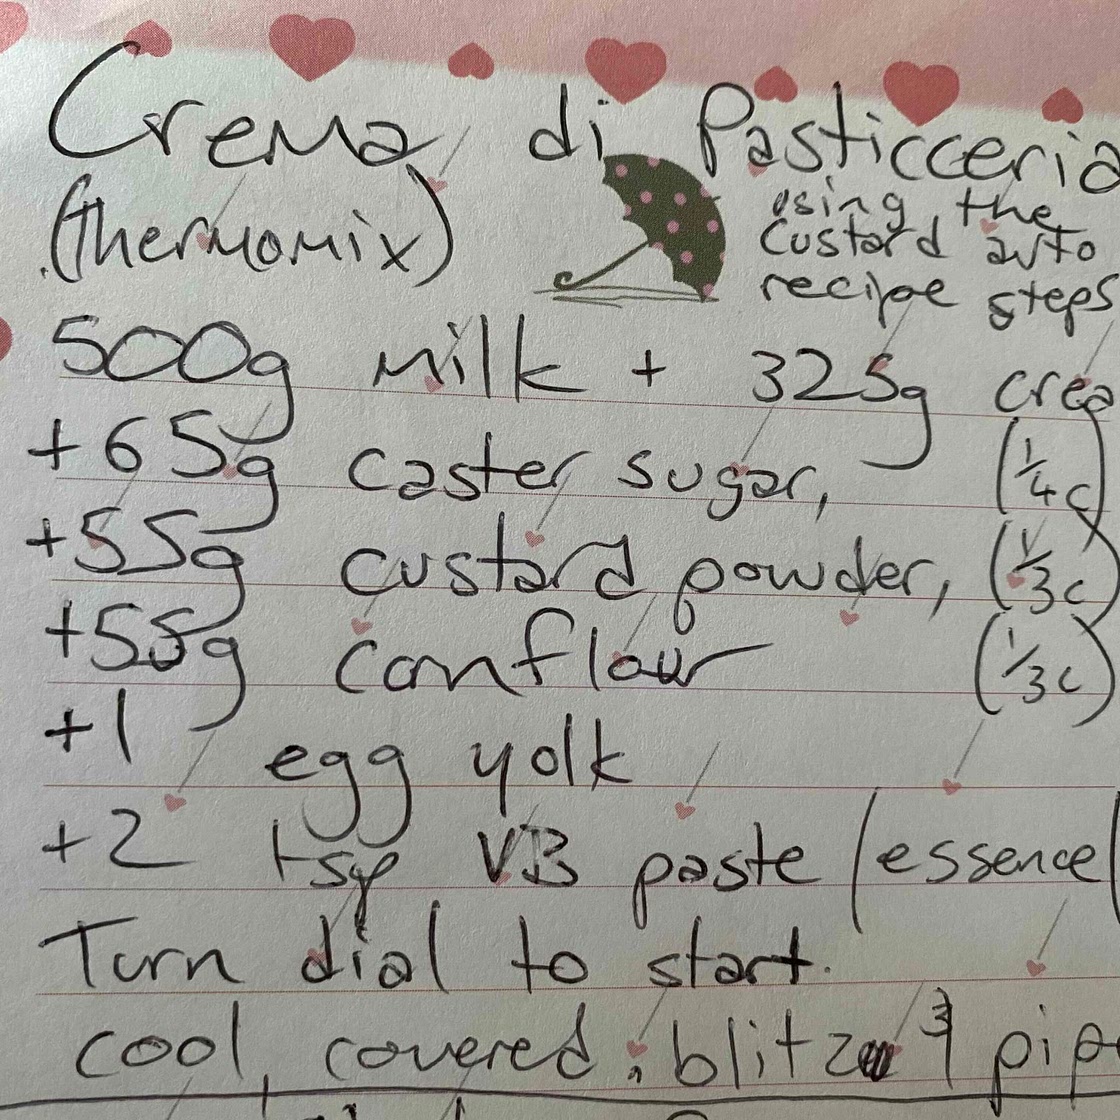 Crema di Pasticceria
(thermomix)
using the
custard auto
recipe steps
500g milk + 325g crea
+65g caster sugar, (1/4c)
+55g custard powder, (1/3c)
+55g cornflour (1/3c)
+1 egg yolk
+2 tsp VB paste /essence/
Turn dial to start.
cool, covered. blitz & pip